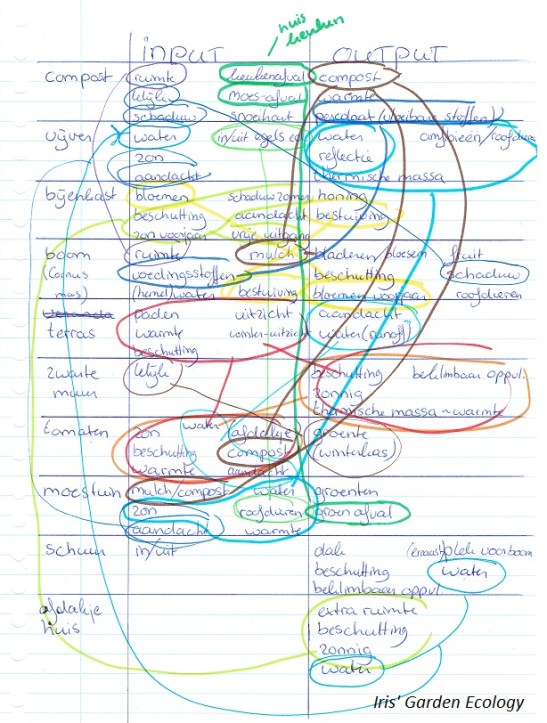 huis
keuken
INPUT OUTPUT
compost ruimte keukenafval compost
lelijk moes-afval warmte
schaduw snoeihout percolaat (vloeibare stoffen)
vijver water in/uit egels ed water amfibieën/roofdieren
zon reflectie
aandacht thermische massa
bijenkast bloemen schaduw zomer honing
beschutting aandacht bestuiving
zon voorjaar vrije uitgang
boom ruimte mulch bladeren/bloesem fruit
(Cornus voedingsstoffen beschutting schaduw
mas) (hemel)water bestuiving bloemen voorjaar roofdieren
terras paden uitzicht aandacht
warmte winter-uitzicht water (runoff)
beschutting
zwarte lelijk beschutting beklimbaar oppvl.
muur zonnig
thermische massa ~ warmte
tomaten zon water afdakje groente
beschutting compost (winterkas)
warmte aandacht
moestuin mulch/compost water groenten
zon roofdieren groen afval
aandacht warmte
schuur in/uit dak (ernaast) plek voor boom
beschutting water
beklimbaar oppvl.
afdakje extra ruimte
huis beschutting
zonnig
water
Iris' Garden Ecology